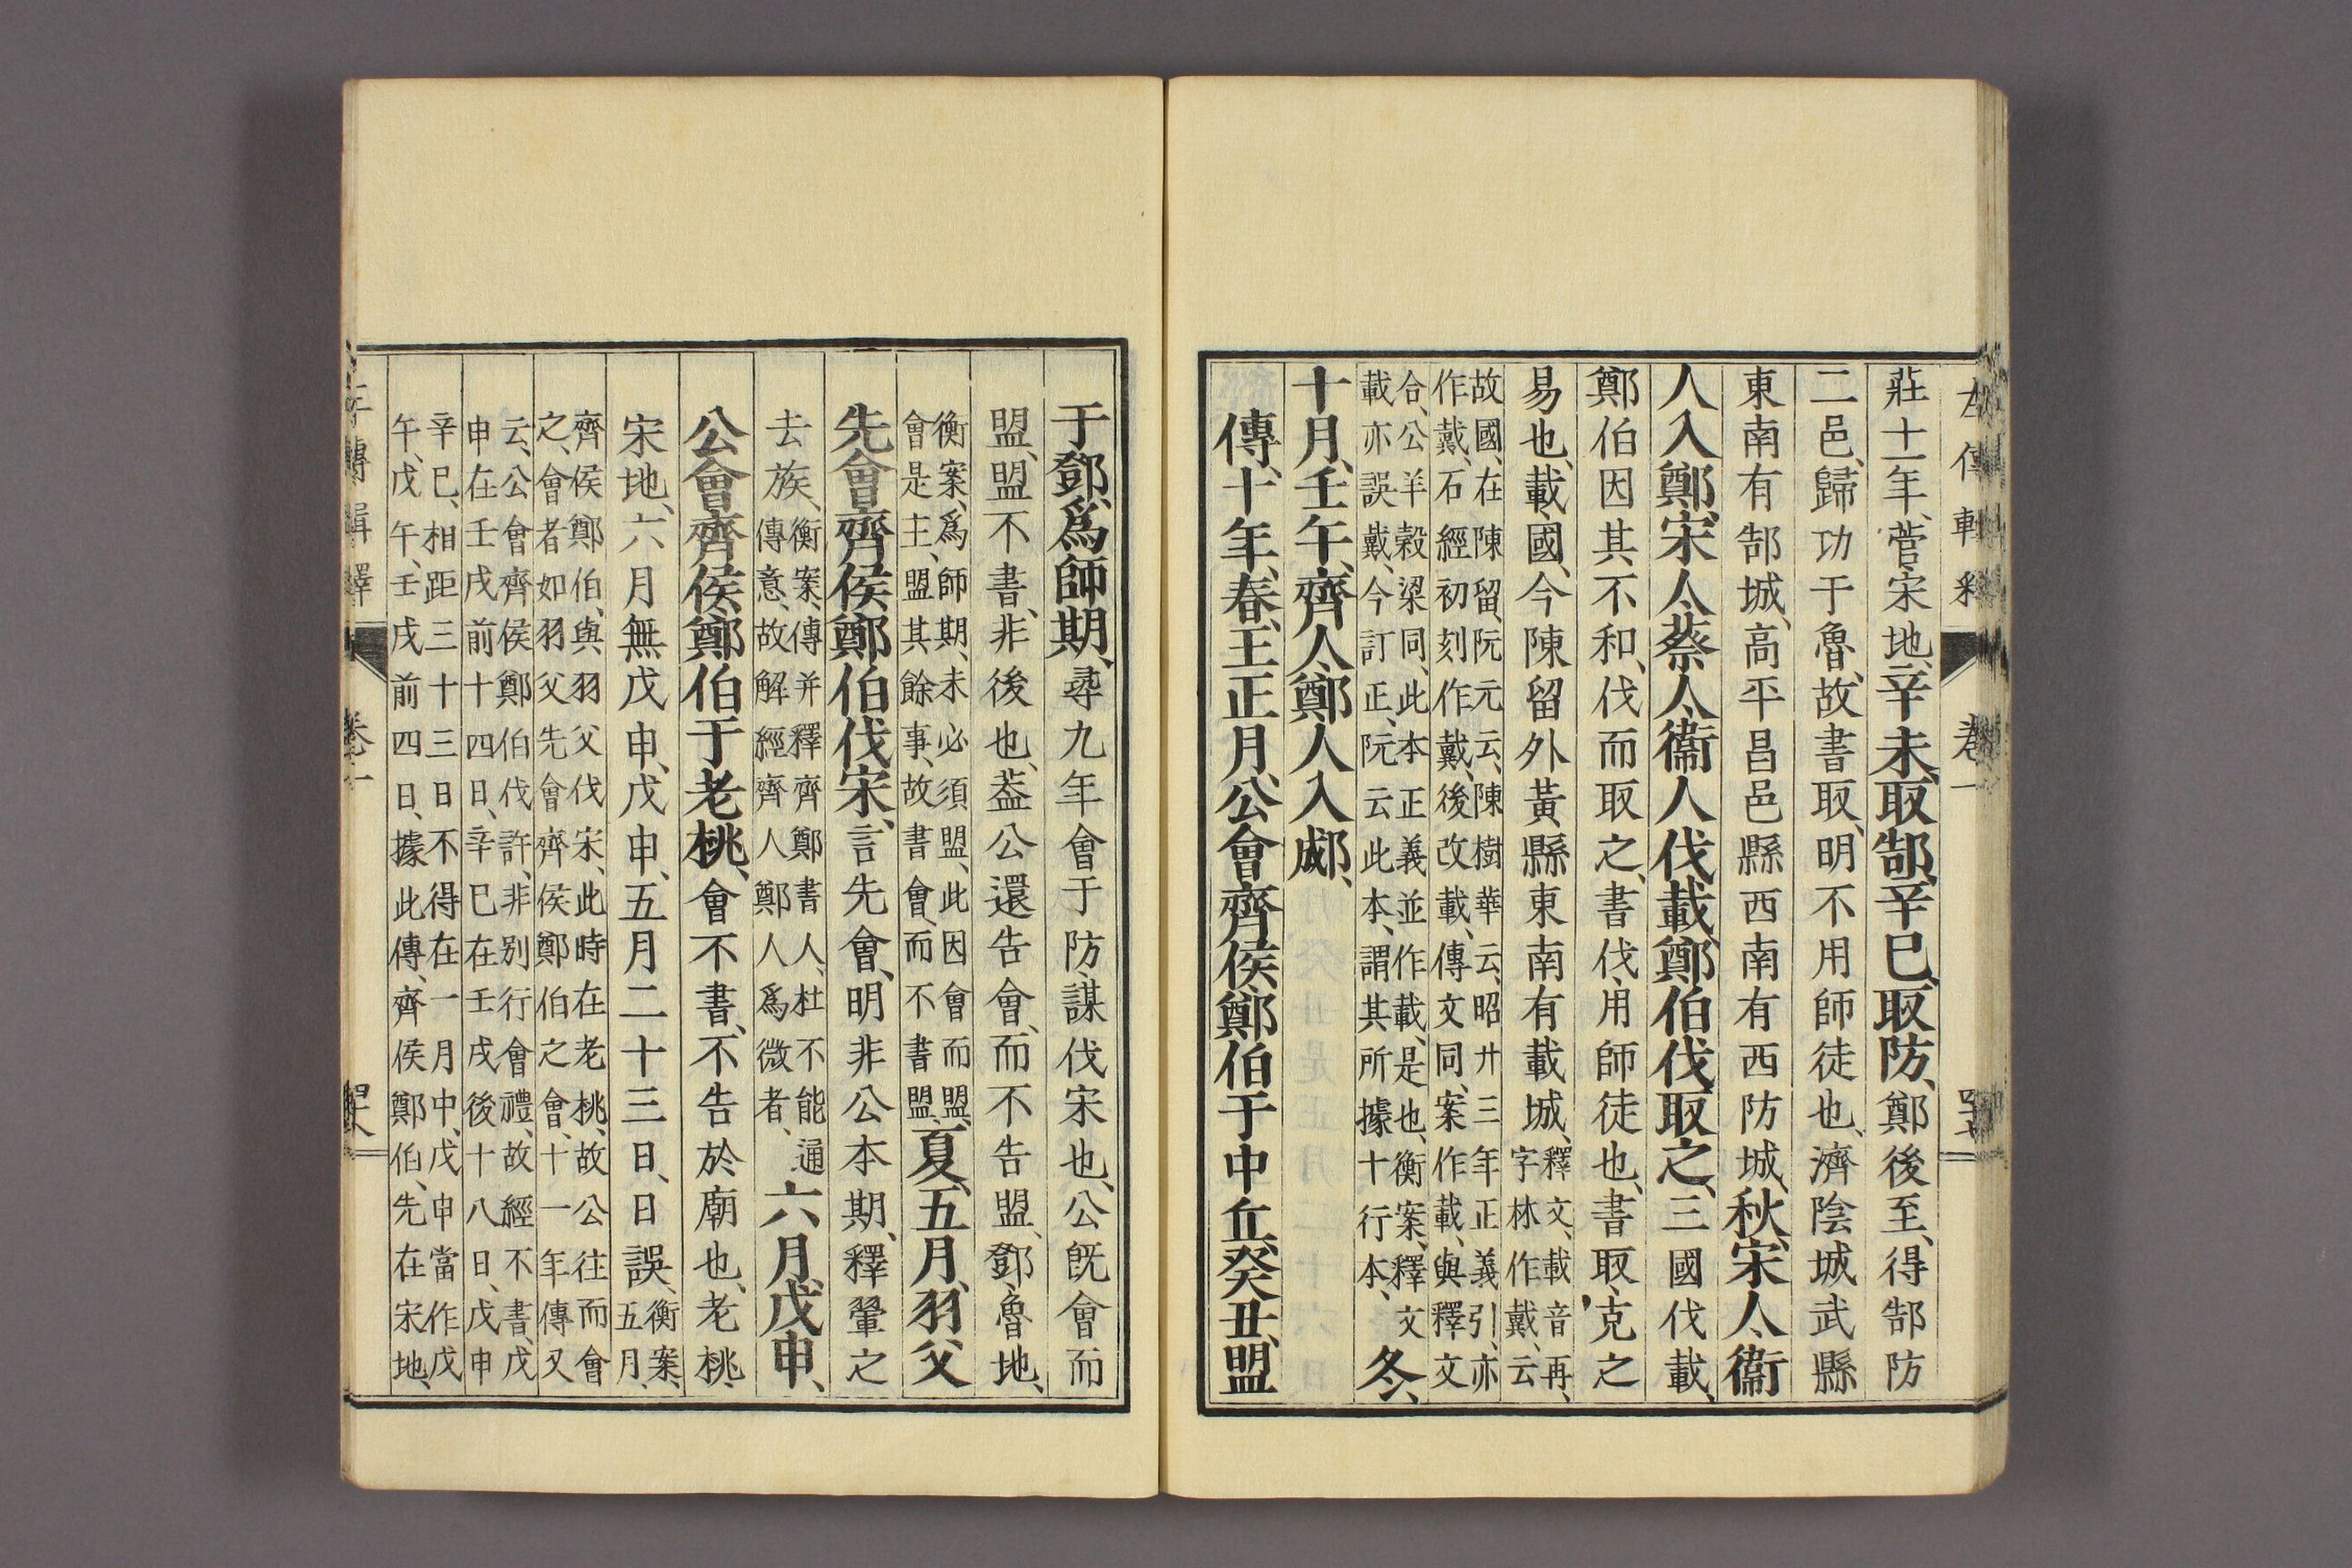 莊十一年、菅、宋地、辛未、取郜、辛巳、取防、鄭後至、得郜防
二邑、歸功于魯、故書取、明不用師徒也、濟陰城武縣
東南有郜城、高平昌邑縣西南有西防城、秋、宋人、衞
人入鄭、宋人、蔡人、衞人伐載、鄭伯伐取之、三國伐載、
鄭伯因其不和、伐而取之、書伐、用師徒也、書取、克之
易也、載、國、今陳留外黃縣東南有載城、釋文、載音再、字林作戴、云
故國、在陳留、阮元云、陳樹華云、昭廾三年正義引、亦
作戴、石經初刻作戴、後改載、傳文同、案作載、與釋文
合、公羊穀梁同、此本正義並作載、是也、衡案、釋文
載亦誤戴、今訂正、阮云此本、謂其所據十行本、冬、
十月、壬午、齊人、鄭人入郕、
傳、十年、春、王正月、公會齊侯、鄭伯于中丘、癸丑、盟
于鄧、爲師期、尋九年會于防、謀伐宋也、公既會而
盟、盟不書、非後也、葢公還告會、而不告盟、鄧、魯地、
衡案、爲師期、未必須盟、此因會而盟、
會是主、盟其餘事、故書會、而不書盟、夏、五月、羽父
先會齊侯、鄭伯伐宋、言先會、明非公本期、釋翬之
去族、衡案、傳并釋齊鄭書人、杜不能通傳意、故解經齊人鄭人爲微者、六月、戊申、
公會齊侯、鄭伯于老桃、會不書、不告於廟也、老桃、
宋地、六月無戊申、戊申、五月二十三日、日誤、衡案、五月、
齊侯鄭伯、與羽父伐宋、此時在老桃、故公往而會
之、會者如羽父先會齊侯鄭伯之會、十一年傳又
云、公會齊侯鄭伯伐許、非別行會禮、故經不書、戊
申在壬戌前十四日、辛巳在壬戌後十八日、戊申
辛巳、相距三十三日、不得在一月中、戊申當作戊
午、戊午、壬戌前四日、據此傳、齊侯鄭伯、先在宋地、